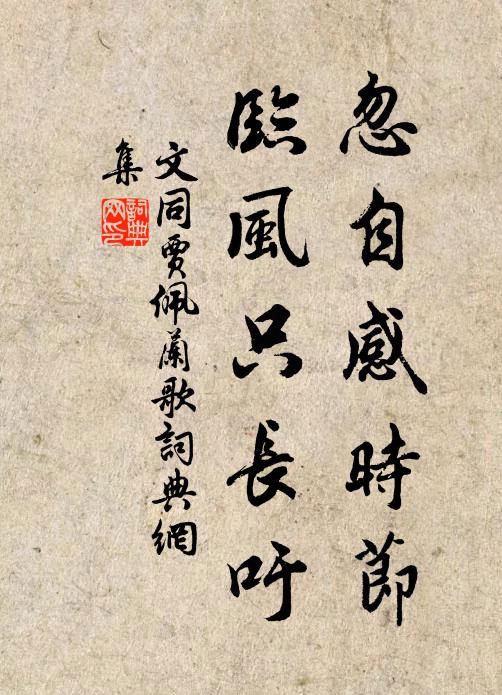 忽自感時節
臨風只長吁
文同賈佩蘭歌詞典網
集
詞典
网印